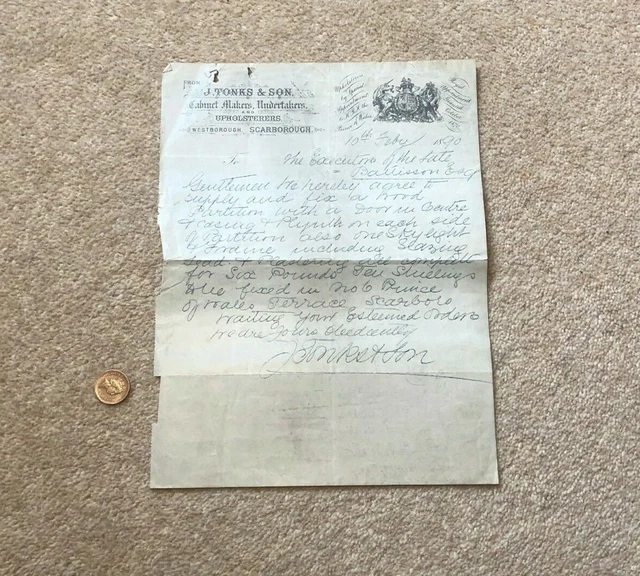 FROM
J. TONKS & SON,
Cabinet Makers, Undertakers,
AND
UPHOLSTERERS.
WESTBOROUGH, SCARBOROUGH.
Upholsterers
by Special
Appointment
to H.R.H. the
Prince of Wales
10th Feby 1890
To The Executors of the late
Esq
Gentlemen We hereby agree to
supply and fix a wood
Partition with a Door in Centre
Casing & Plynth on each side
of Partition also one Skylight
including Glazing
& Plastering all complete
for Six Pounds Ten Shillings
fixed in No 6 Prince
Of Wales Terrace Scarboro
Waiting Your Esteemed Orders
We are Yours Obediently
J Tonks & Son